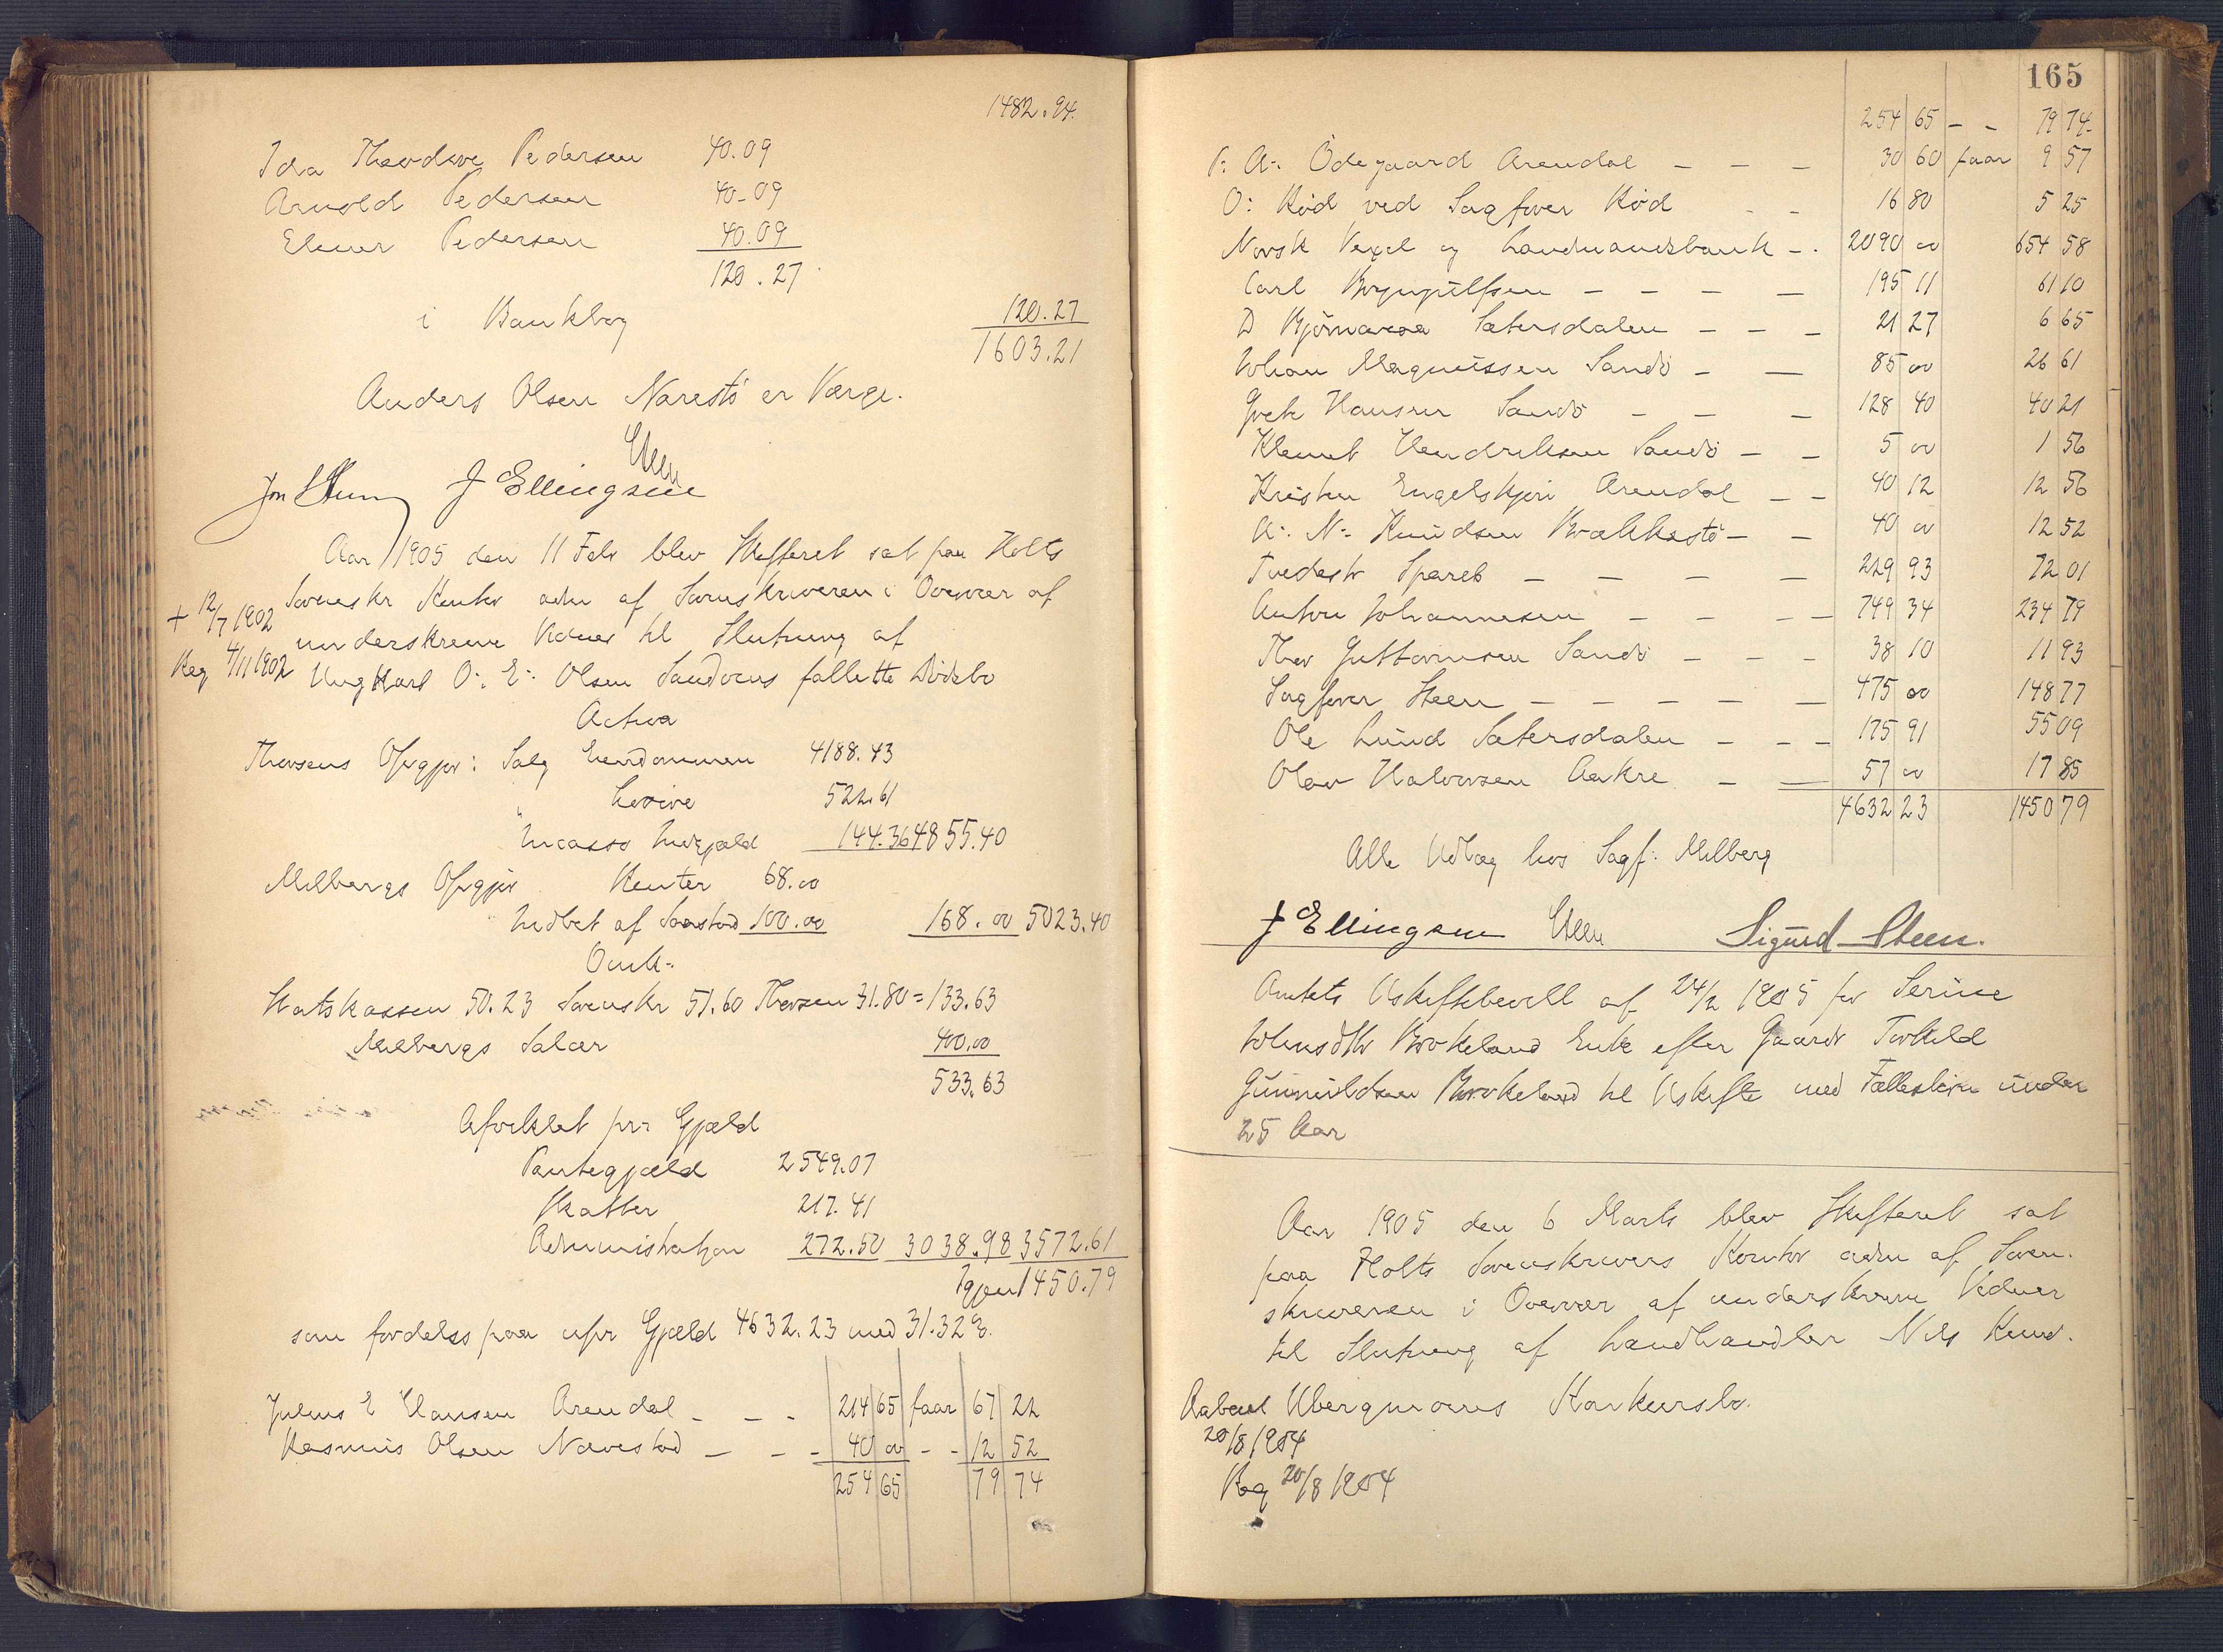 1482.94.
Ida Theodore Pedersen 40.09
Arnold Pedersen 40-09
Elmer Pedersen 40.09
120.27
i Bankbog 120.27
1603.21
Anders Olsen Narestö er Værge.
J Ellingsen
Aar 1905 den 11 Febr blev Skifteret sat paa Holts
Sorenskr Kontor adm af Sorenskriveren i Overvær af
+ 12/7 1902
underskrevne Vidner til Slutning af
Beg 4/11 1902
Ungkarl O: E: Olsen Sandoens fallitte Dödsbo
Activa
Thorsens Opgjör: Salg Eiendommen 4188.43
Lösöre 522.61
" Incasso Indgjæld 144.36 4855.40
Melbergs Opgjör Renter 68.00
Indbet af Saastad 100.00 168.00 5023.40
Omk:
Statskassen 50.23 Sorenskr 51.60 Thorsen 31.80 = 133.63
Melbergs Salær 400.00
533.63
Afviklet pr: Gjæld
Pantegjæld 2549.07
Skatter 217.41
Administration 272.50 3038.98 3572.61
Igjen 1450.79
som fordeles paa upr Gjæld 4632.23 med 31.32 %.
Julius E Hansen Arendal - - - 214 65 faar 67 22
Rasmus Olsen Navestad - - - 40 00 - - 12 52
254 65 79 74
165
254 65 - - 79 74-
P: A: Ödegaard Arendal - - - 30 60 faar 9 57
O: Röd ved Sagförer Röd - - 16 80 5 25
Norsk Vexel og Landmandsbank -. 2090 00 654 58
Carl Bryngulfsen - - - - 195 11 61 10
D Björnaraa Sætersdalen - - - 21 27 6 65
Johan Magnussen Sandö - - 85 00 26 61
Grete Hansen Sandö - - - 128 40 40 21
Klemet Hendriksen Sandö - - 5 00 1 56
Kristen Engelskjön Arendal - - 40 12 12 56
K: N: Knudsen Brækkestö - - 40 00 12 52
Tvedestr Spareb - - - - 229 93 72 01
Anton Johannesen - - - - 749 34 234 79
Thor Guttormsen Sandö - - - 38 10 11 93
Sagförer Steen - - - - - - 475 00 148 77
Ole Lund Sætersdalen - - - 175 91 55 09
Olav Halvorsen Aakre - - 57 00 17 85
4632 23 1450 79
Alle Udlæg hos Sagf: Melberg
J Ellingsen Sigurd Steen.
Amtets Uskiftebevill af 24/2 1905 for Serine
Johnsdtr Brokeland Enke efter Gaardr Torkild
Gunnuldsen Brokeland til Uskifte med Fællesbörn under
25 Aar
Aar 1905 den 6 Marts blev Skifteret sat
paa Holts Sorenskrivers Kontor adm af Soren-
skriveren i Overvær af underskrevne Vidner
til Slutning af Landhandler Nils Knud.
Aabnet Ubergmoens Konkursbo.
20/8 1904
Beg 20/8 1904